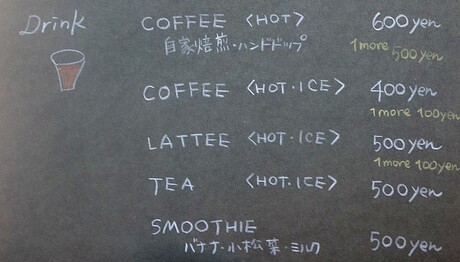 Drink
COFFEE <HOT> 600yen
自家焙煎・ハンドドップ 1more 500yen
COFFEE <HOT・ICE> 400yen
1more 100yen
LATTEE <HOT・ICE> 500yen
1more 100yen
TEA <HOT・ICE> 500yen
SMOOTHIE
バナナ・小松菜・ミルク 500yen